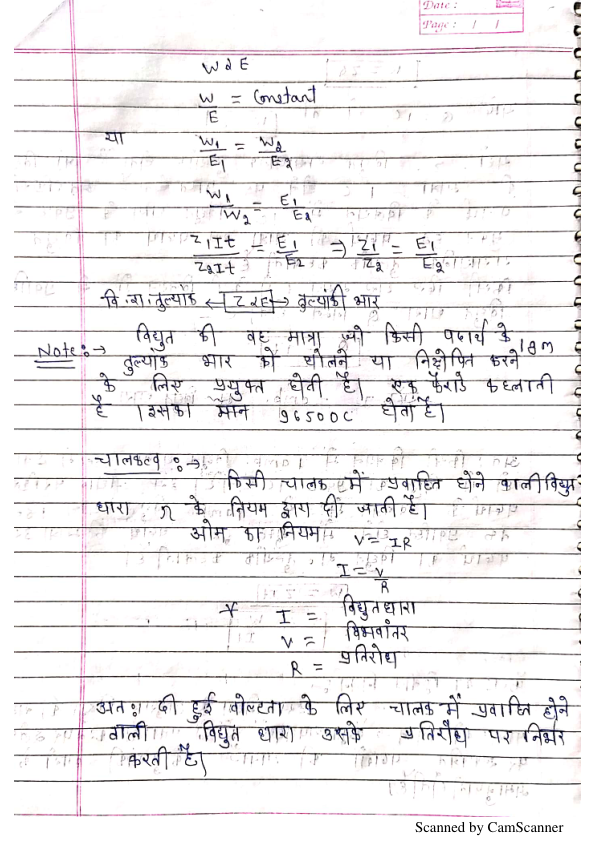 Date :
Page : 1 1
W α E
W/E = Constant
या W1/E1 = W2/E2
W1/W2 = E1/E2
Z1It/Z2It = E1/E2 ⇒ Z1/Z2 = E1/E2
वि. रा. तुल्यांक ← Z α E → तुल्यांकी भार
Note :→ विद्युत की वह मात्रा जो किसी पदार्थ के 1gm
तुल्यांक भार को घोलने या निक्षेपित करने
के लिए प्रयुक्त होती है। एक फैराडे कहलाती
है । इसका मान 96500C होता है।
चालकत्व :→
किसी चालक में प्रवाहित होने वाली विद्युत
धारा के नियम द्वारा दी जाती है।
ओम का नियम V = IR
I = V/R
I = विद्युतधारा
V = विभवांतर
R = प्रतिरोध
अतः दी हुई वोल्टता के लिए चालक में प्रवाहित होने
वाली विद्युत धारा उसके प्रतिरोध पर निर्भर
करती है।
Scanned by CamScanner